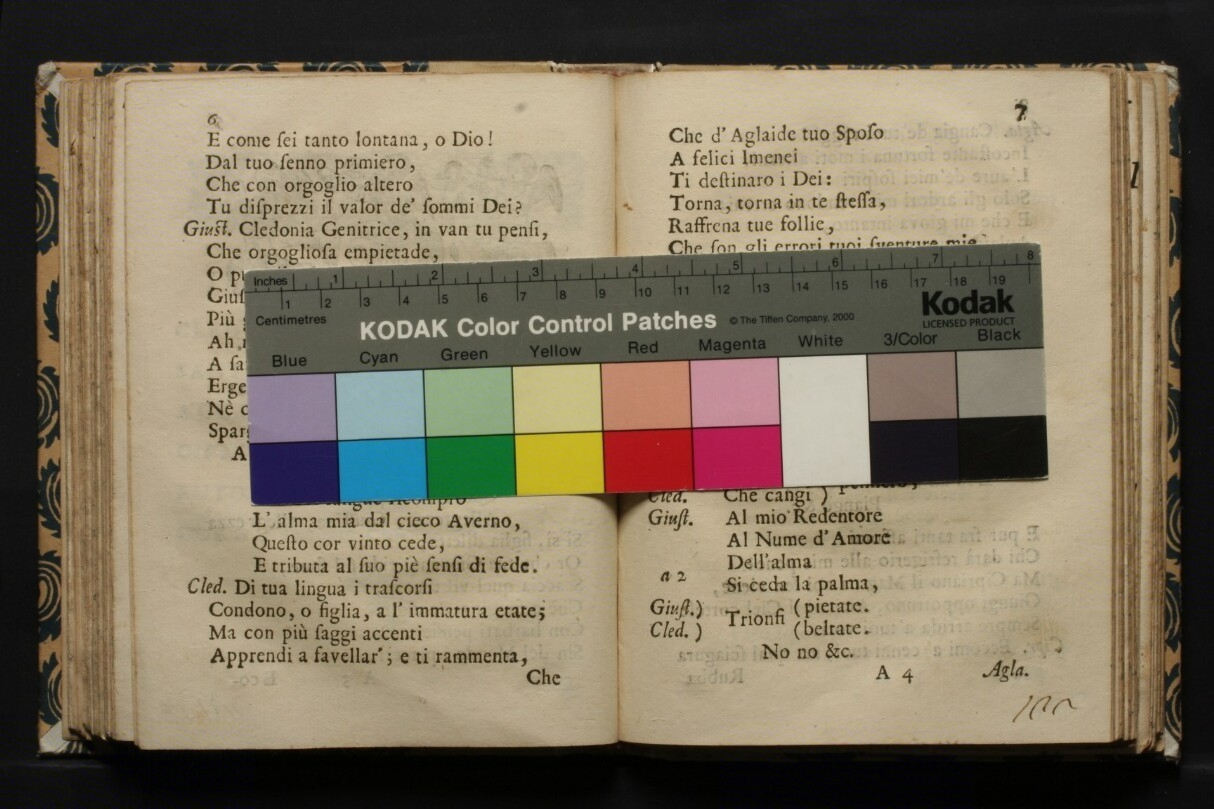 6
E come sei tanto lontana, o Dio!
Dal tuo senno primiero,
Che con orgoglio altero
Tu disprezzi il valor de' sommi Dei?
Giust. Cledonia Genitrice, in van tu pensi,
Che orgogliosa empietade,
O
Più
Ah
A
Erge
Nè
A
L' alma mia dal cieco Averno,
Questo cor vinto cede,
E tributa al suo piè sensi di fede.
Cled. Di tua lingua i trascorsi
Condono, o figlia, a l' immatura etate;
Ma con più saggi accenti
Apprendi a favellar'; e ti rammenta,
Che
7
Che d' Aglaide tuo Sposo
A felici Imenei
Ti destinaro i Dei:
Torna, torna in te stessa,
Raffrena tue follie,
Che son gli errori tuoi sventure mie
Cled. Che cangi )
Giust. Al mio Redentore
Al Nume d' Amore
Dell' alma
a 2
Si ceda la palma,
Giust.) Trionfi (pietate.
Cled. ) (beltate.
No no &c.
A 4 Agla.
Inches 1 2 3 4 5 6 7 8
1 2 3 4 5 6 7 8 9 10 11 12 13 14 15 16 17 18 19
Centimetres
KODAK Color Control Patches © The Tiffen Company, 2000
Kodak
LICENSED PRODUCT
Blue Cyan Green Yellow Red Magenta White 3/Color Black